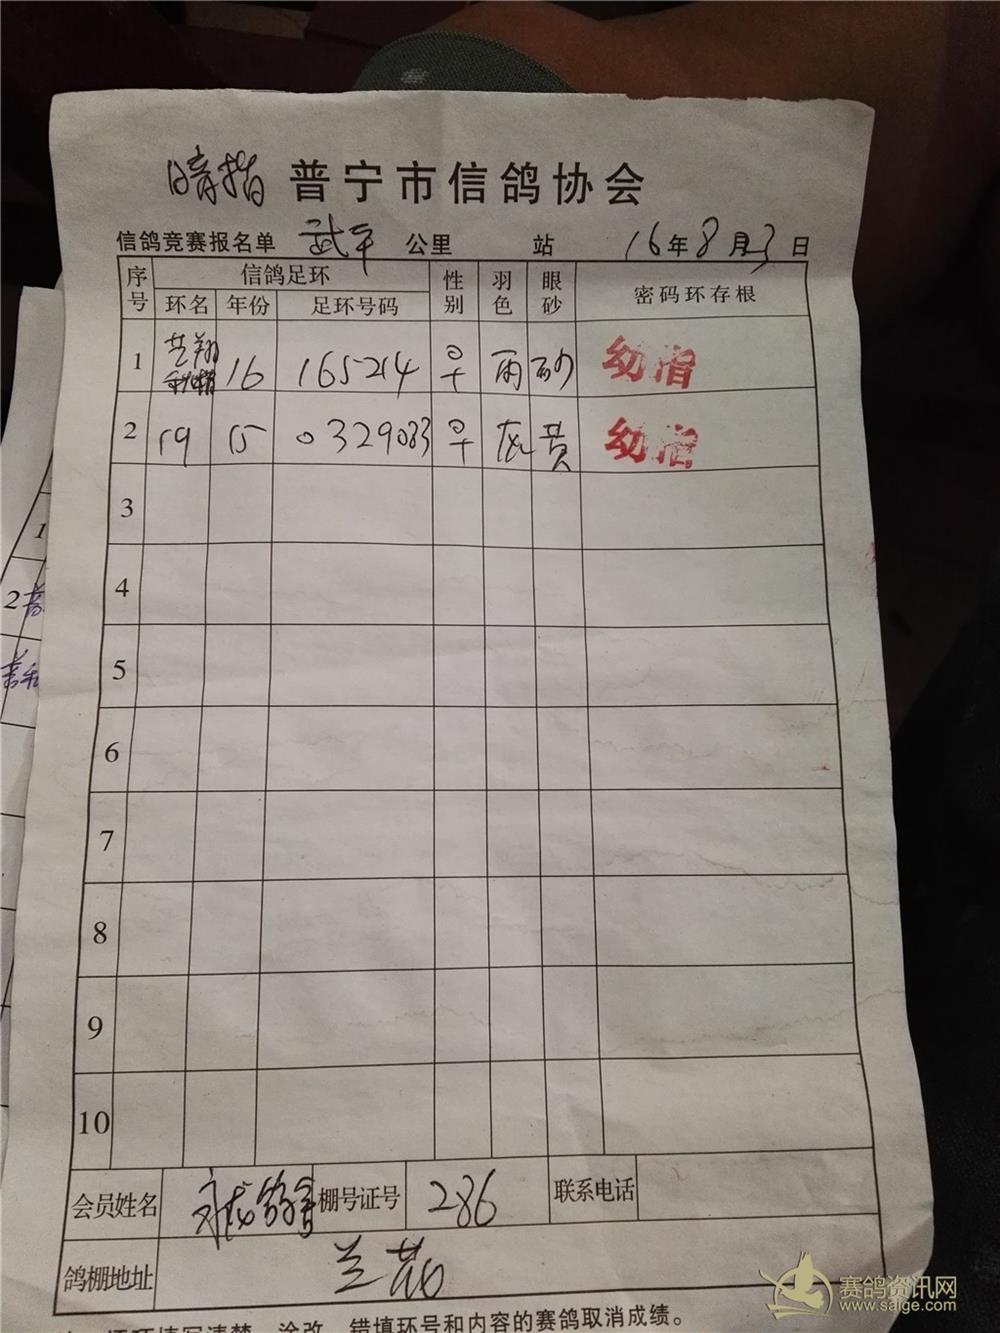 暗指 普宁市信鸽协会
信鸽竞赛报名单 武平 公里 站 16年8月3日
序号 信鸽足环 性别 羽色 眼砂 密码环存根
环名 年份 足环号码
1 16 165214 早 雨 砂 幼
2 19 15 0329083 早 灰 黄 幼
3
4
5
6
7
8
9
10
会员姓名 棚号证号 286 联系电话
鸽棚地址 兰花
错填环号和内容的赛鸽取消成绩。
赛鸽资讯网
www.saige.com
1
2